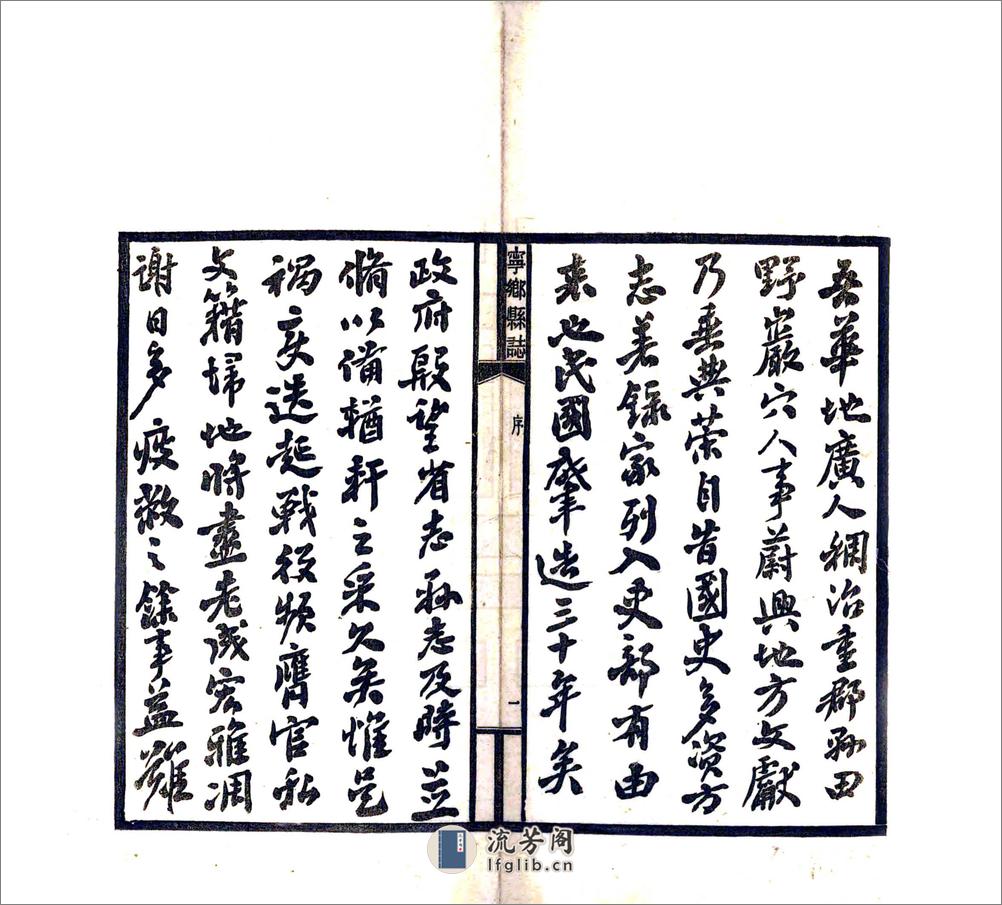 吾華地廣人稠治重郡縣田
野巖穴人事蔚興地方文獻
乃垂典榮自昔國史多資方
志著錄家列入史部有由
來也民國肇造三十年矣
寧鄉縣誌
序
一
政府殷望省志縣志及時並
脩以備輶軒之采久矣惟邑
禍變迭起戰役頻膺官私
文籍掃地將盡老成宏雅凋
謝日多疲敝之餘事益難
流芳阁
lfglib.cn